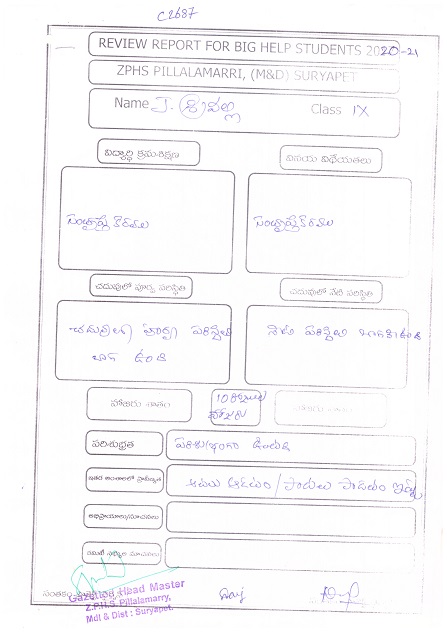 C2687
REVIEW REPORT FOR BIG HELP STUDENTS 2020-21
ZPHS PILLALAMARRI, (M&D) SURYAPET
Name J. శ్రీవల్లి Class IX
విద్యార్థి క్రమశిక్షణ
వినయ విధేయతలు
సంతృప్తికరము
సంతృప్తికరము
చదువులో పూర్వ పరిస్థితి
చదువులో నేటి పరిస్థితి
చదువులో పూర్వ పరిస్థితి
బాగ ఉంది
నేటి పరిస్థితి బాగానే ఉంది
హాజరు శాతం
10 రోజులు
హాజరు
పరిశుభ్రత
పరిశుభ్రంగా ఉంటుంది
ఇతర అంశాలలో ప్రావీణ్యత
ఆటలు ఆడటం / పాటలు పాడటం ఇష్టం
అభిప్రాయాలు/సూచనలు
కమిటీ సభ్యుల సూచనలు
Gazetted Head Master
Z.P.H.S. Pillalamarry,
Mdl & Dist : Suryapet.